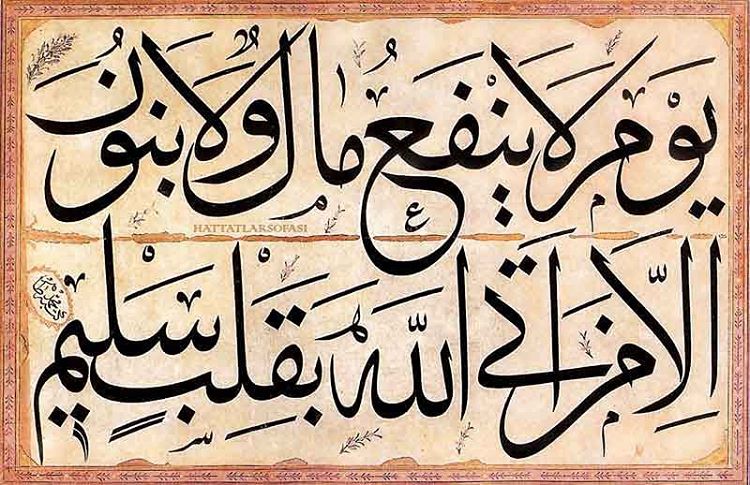 يَوْمَ لَا يَنْفَعُ مَالٌ وَلَا بَنُونَ
HATTATLARSOFASI
إِلَّا مَنْ أَتَى اللَّهَ بِقَلْبٍ سَلِيمٍ